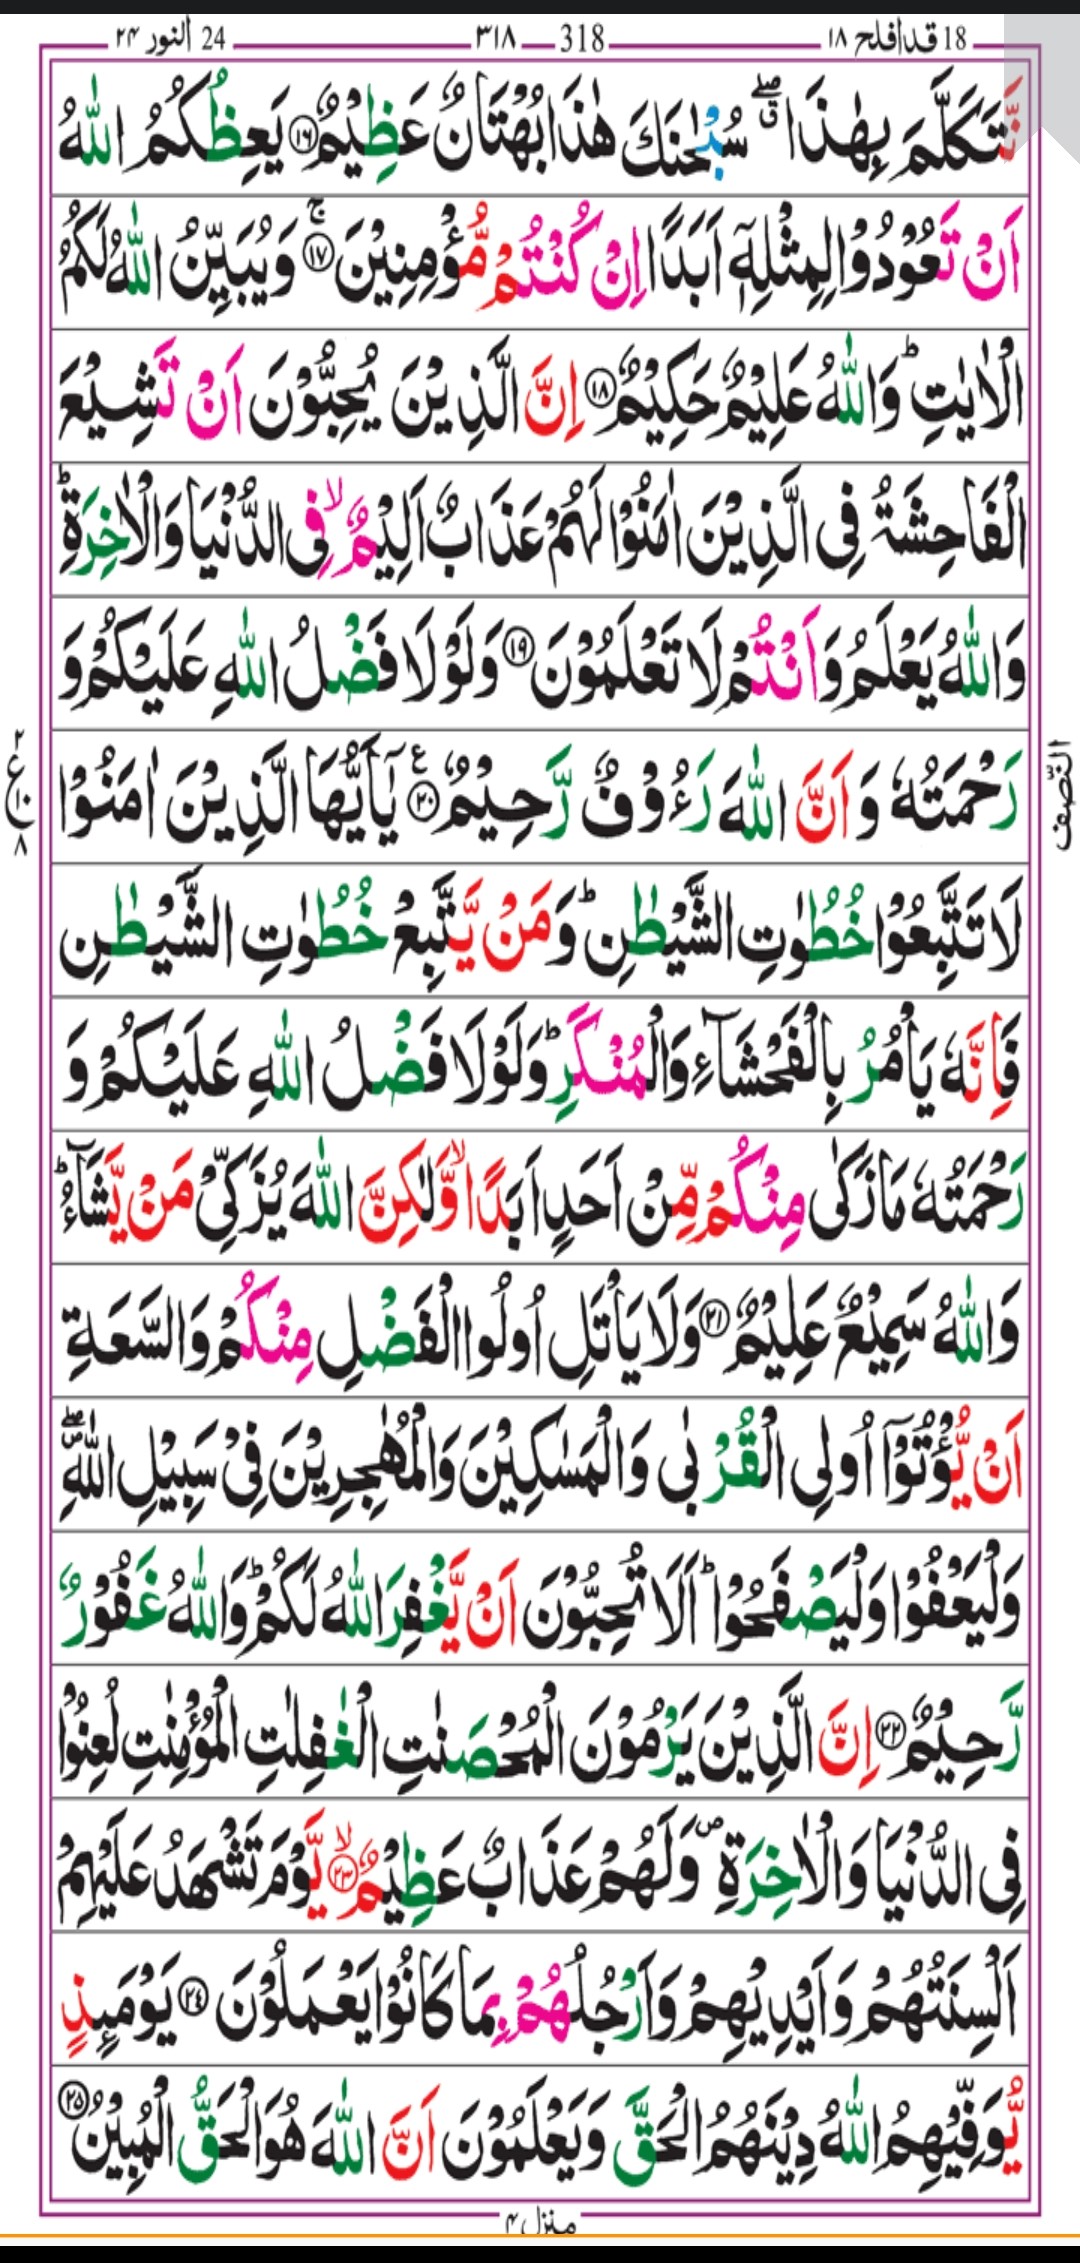 18 قداَفلح ١٨ 318 ٣١٨ 24 النور ٢٤
نَّتَكَلَّمَ بِهٰذَا ۖۗ سُبْحٰنَكَ هٰذَا بُهْتَانٌ عَظِيْمٌ ﴿١٦﴾ يَعِظُكُمُ اللّٰهُ
اَنْ تَعُوْدُوْا لِمِثْلِهٖۤ اَبَدًا اِنْ كُنْتُمْ مُّؤْمِنِيْنَ ۚ﴿١٧﴾ وَيُبَيِّنُ اللّٰهُ لَكُمُ
الْاٰيٰتِ ؕ وَاللّٰهُ عَلِيْمٌ حَكِيْمٌ ﴿١٨﴾ اِنَّ الَّذِيْنَ يُحِبُّوْنَ اَنْ تَشِيْعَ
الْفَاحِشَةُ فِى الَّذِيْنَ اٰمَنُوْا لَهُمْ عَذَابٌ اَلِيْمٌ ۙ فِى الدُّنْيَا وَالْاٰخِرَةِ ؕ
وَاللّٰهُ يَعْلَمُ وَاَنْتُمْ لَا تَعْلَمُوْنَ ﴿١٩﴾ وَلَوْلَا فَضْلُ اللّٰهِ عَلَيْكُمْ وَ
رَحْمَتُهٗ وَاَنَّ اللّٰهَ رَءُوْفٌ رَّحِيْمٌ ﴿٢٠﴾ ع يٰۤاَيُّهَا الَّذِيْنَ اٰمَنُوْا
النّصف
٢ ع ١٠ ٨
لَا تَتَّبِعُوْا خُطُوٰتِ الشَّيْطٰنِ ؕ وَمَنْ يَّتَّبِعْ خُطُوٰتِ الشَّيْطٰنِ
فَاِنَّهٗ يَاْمُرُ بِالْفَحْشَآءِ وَالْمُنْكَرِ ؕ وَلَوْلَا فَضْلُ اللّٰهِ عَلَيْكُمْ وَ
رَحْمَتُهٗ مَا زَكٰى مِنْكُمْ مِّنْ اَحَدٍ اَبَدًا ۙ وَّلٰكِنَّ اللّٰهَ يُزَكِّىْ مَنْ يَّشَآءُ ؕ
وَاللّٰهُ سَمِيْعٌ عَلِيْمٌ ﴿٢١﴾ وَلَا يَاْتَلِ اُولُوا الْفَضْلِ مِنْكُمْ وَالسَّعَةِ
اَنْ يُّؤْتُوْۤا اُولِى الْقُرْبٰى وَالْمَسٰكِيْنَ وَالْمُهٰجِرِيْنَ فِىْ سَبِيْلِ اللّٰهِ ۖ
وَلْيَعْفُوْا وَلْيَصْفَحُوْا ؕ اَلَا تُحِبُّوْنَ اَنْ يَّغْفِرَ اللّٰهُ لَكُمْ ؕ وَاللّٰهُ غَفُوْرٌ
رَّحِيْمٌ ﴿٢٢﴾ اِنَّ الَّذِيْنَ يَرْمُوْنَ الْمُحْصَنٰتِ الْغٰفِلٰتِ الْمُؤْمِنٰتِ لُعِنُوْا
فِى الدُّنْيَا وَالْاٰخِرَةِ ۪ وَلَهُمْ عَذَابٌ عَظِيْمٌ ۙ﴿٢٣﴾ يَّوْمَ تَشْهَدُ عَلَيْهِمْ
اَلْسِنَتُهُمْ وَاَيْدِيْهِمْ وَاَرْجُلُهُمْ بِمَا كَانُوْا يَعْمَلُوْنَ ﴿٢٤﴾ يَوْمَئِذٍ
يُّوَفِّيْهِمُ اللّٰهُ دِيْنَهُمُ الْحَقَّ وَيَعْلَمُوْنَ اَنَّ اللّٰهَ هُوَ الْحَقُّ الْمُبِيْنُ ﴿٢٥﴾
منزل ٤